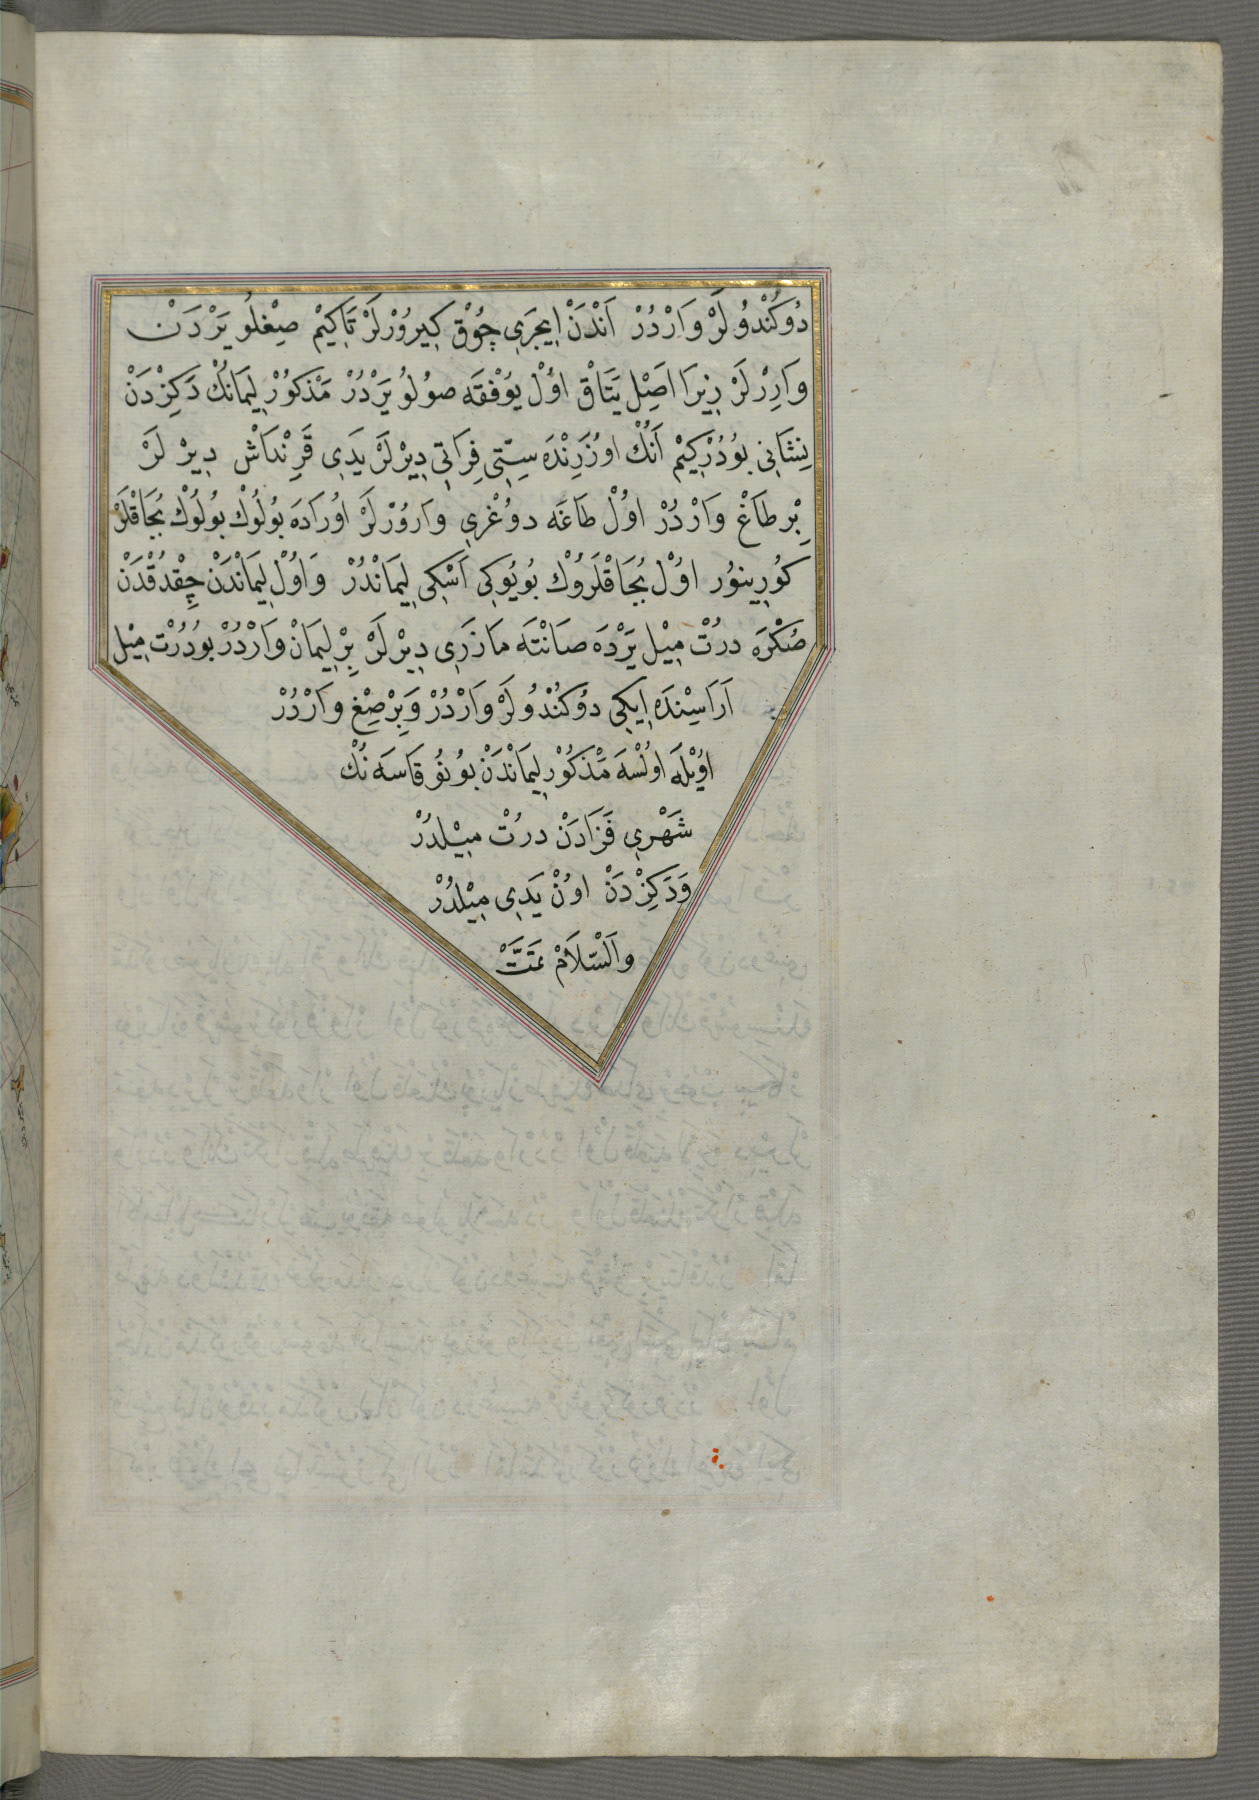 دُوكُنْدُولَرْ وَارْدُرْ اَنْدَنْ اِيجَرِي چُوْقْ كِيرُوْرلَرْ تَاكِيْم صِيْغلُو يَرْدَنْ
وَارِرْلَرْ زِيرَا اَصِلْ يَتَاقْ اوُلْ يوُفْقَه صوُلُو يَرْدُرْ مَذْكوُرْ لِيمَانكْ دَكِزْدَنْ
نِشَانِي بوُدُرْكِيمْ اَنُكْ اوُزَرِنْدَه سِتِّي فِرَاتِي دِيرْلَرْ يَدِي قَرِنْدَاشْ دِيرْ لَرْ
بِرْ طَاغْ وَارْدُرْ اوُلْ طَاغَه دوُغْرِي وَارُوْرلَرْ اوُرَادَه بوُلُوكْ بوُلُوكْ بُجَاقْلَرْ
كوُرِينوُر اوُلْ بُجَاقْلَرُوكْ بوُيُوكِي اَسْكِي لِيمَانْدُرْ وَاوُلْ لِيمَانْدَنْ چِقْدُقْدَنْ
صُكْرَه دُرتْ مِيْل يَرْدَه صَانْتَه مَازَرِي دِيرْلَرْ بِرْ لِيمَانْ وَارْدُرْ بوُ دُرْت مِيْل
اَرَاسِنْدَه اِيكِي دوُكُنْدُولَرْ وَارْدُرْ وَبِرْ صِغْ وَارْدُرْ
اوُيْلَه اوُلْسَه مَذْكوُرْ لِيمَانْدَنْ بوُنوُ قَاسَه نُكْ
شَهْرِي فَزَادَنْ دُرتْ مِيْلدُرْ
وَدَكِزْدَنْ اوُنْ يَدِي مِيْلدُرْ
وَالسَّلاَمْ تَمَّتْ